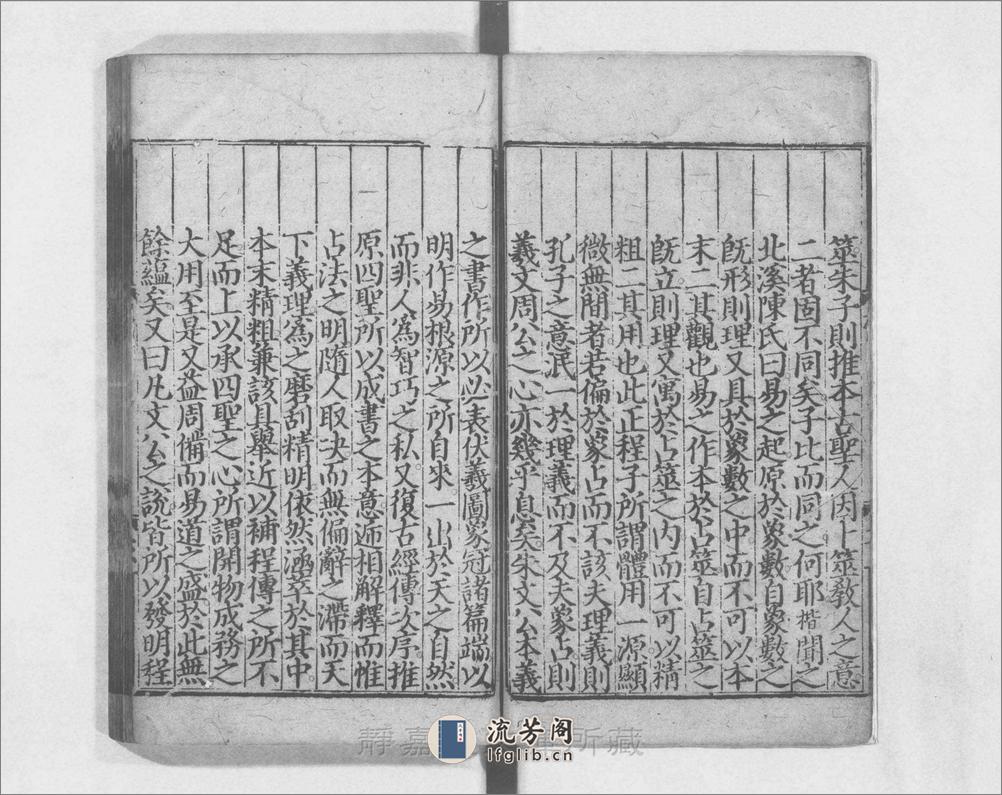 筮朱子則推本古聖人因卜筮敎人之意
二者固不同矣子比而同之何耶楷聞之
北溪陳氏曰易之起原於象數自象數之
旣形則理又具於象數之中而不可以本
末二其觀也易之作本於占筮自占筮之
旣立則理又寓於占筮之内而不可以精
粗二其用也此正程子所謂體用一源顯
微無間者若偏於象占而不該夫理義則
孔子之意泯一於理義而不及夫象占則
羲文周公之心亦幾乎息矣朱文公本義
之書作所以必表伏羲圖象冠諸篇端以
明作易根源之所自來一出於天之自然
而非人爲智巧之私又復古經傳次序推
原四聖所以成書之本意遞相解釋而惟
占法之明隨人取决而無偏辭之滯而天
下義理爲之磨刮精明依然涵萃於其中
本末精粗兼該具舉近以補程傳之所不
足而上以承四聖之心所謂開物成務之
大用至是又益周備而易道之盛於此無
餘蘊矣又曰凡文公之說皆所以發明程
靜嘉 所藏
流芳阁
lfglib.cn